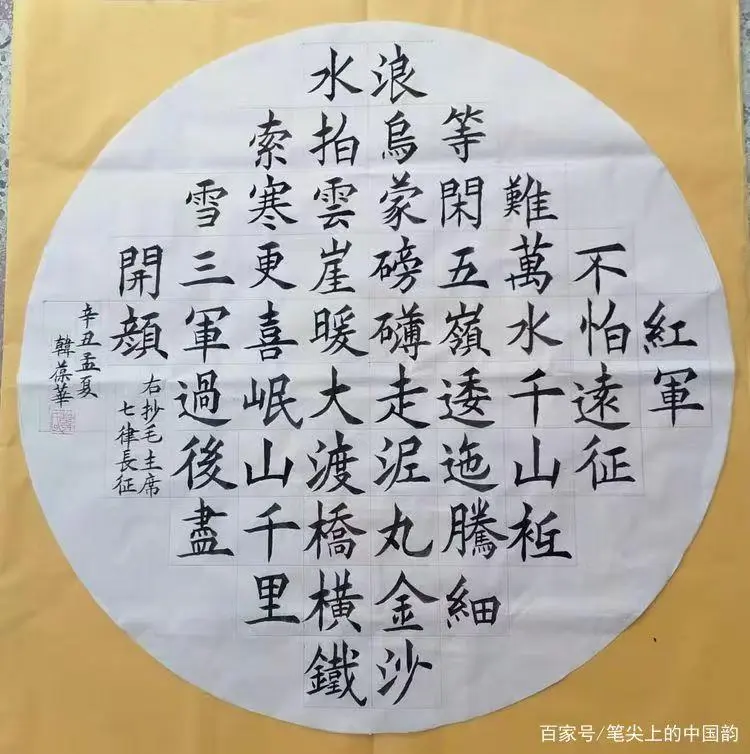 紅軍
不怕遠征
難萬水千山衹
等閑五嶺逶迤騰細
浪烏蒙磅礴走泥丸金沙
水拍雲崖暖大渡橋橫鐵
索寒更喜岷山千里
雪三軍過後盡
開顏
右抄毛主席
七律長征
辛丑孟夏
韓葆華
百家号/笔尖上的中国韵